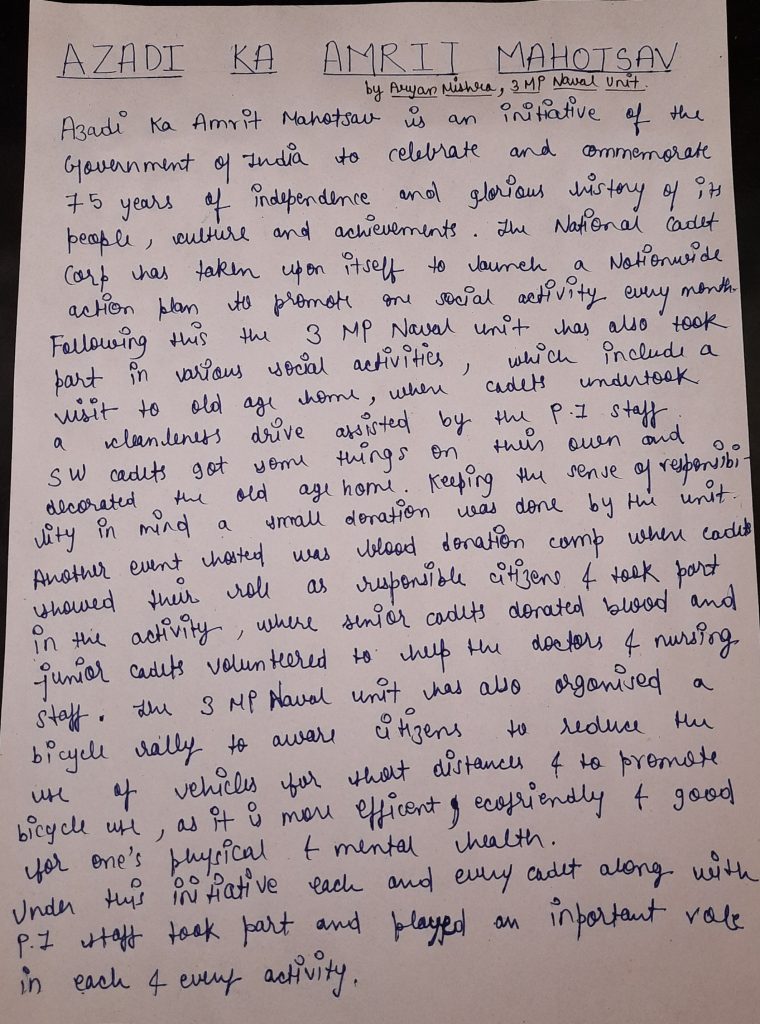 AZADI KA AMRIT MAHOTSAV
by Aryan Mishra, 3 MP Naval Unit.
Azadi Ka Amrit Mahotsav is an initiative of the
Government of India to celebrate and commemorate
75 years of independence and glorious history of its
people, culture and achievements. The National Cadet
Corp has taken upon itself to launch a Nationwide
action plan to promote one social activity every month.
Following this the 3 MP Naval unit has also took
part in various social activities, which include a
visit to old age home, where cadets undertook
a cleanleness drive assisted by the P.I staff.
SW cadets got some things on their own and
decorated the old age home. Keeping the sense of responsibi-
lity in mind a small donation was done by the unit.
Another event hosted was blood donation camp where cadets
showed their role as responsible citizens & took part
in the activity, where senior cadets donated blood and
junior cadets volunteered to help the doctors & nursing
staff. The 3 MP Naval unit has also organised a
bicycle rally to aware citizens to reduce the
use of vehicles for short distances & to promote
bicycle use, as it is more efficent, ecofriendly & good
for one's physical & mental health.
Under this initiative each and every cadet along with
P.I staff took part and played an inportant role
in each & every activity.